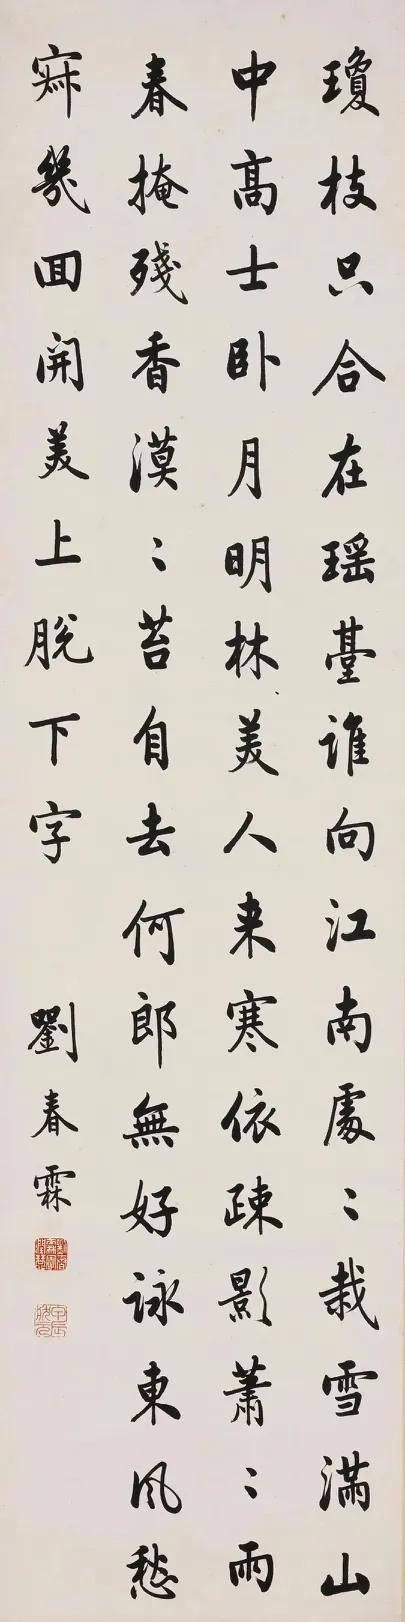 瓊枝只合在瑶臺誰向江南處〻栽雪滿山
中高士卧月明林美人来寒依疎影蕭〻雨
春掩殘香漠〻苔自去何郎無好詠東風愁
寂幾囬開美上脱下字
劉春霖